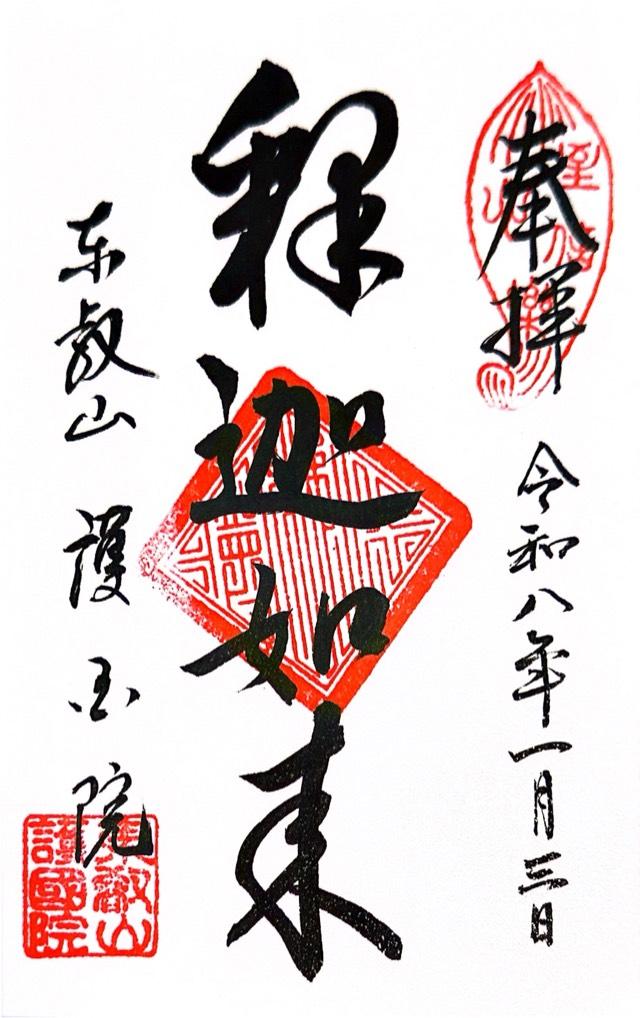 奉拝
令和八年一月三日
釋迦如来
东叡山 護国院
東叡山
護國院